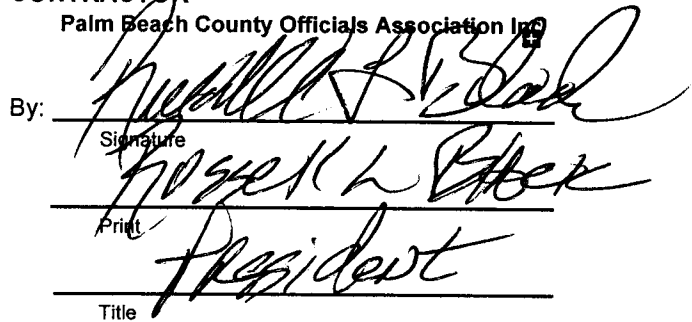 CONTRACTOR
Palm Beach County Officials Association Inc
By: Russell L Black
Signature
Russell L Black
Print
President
Title